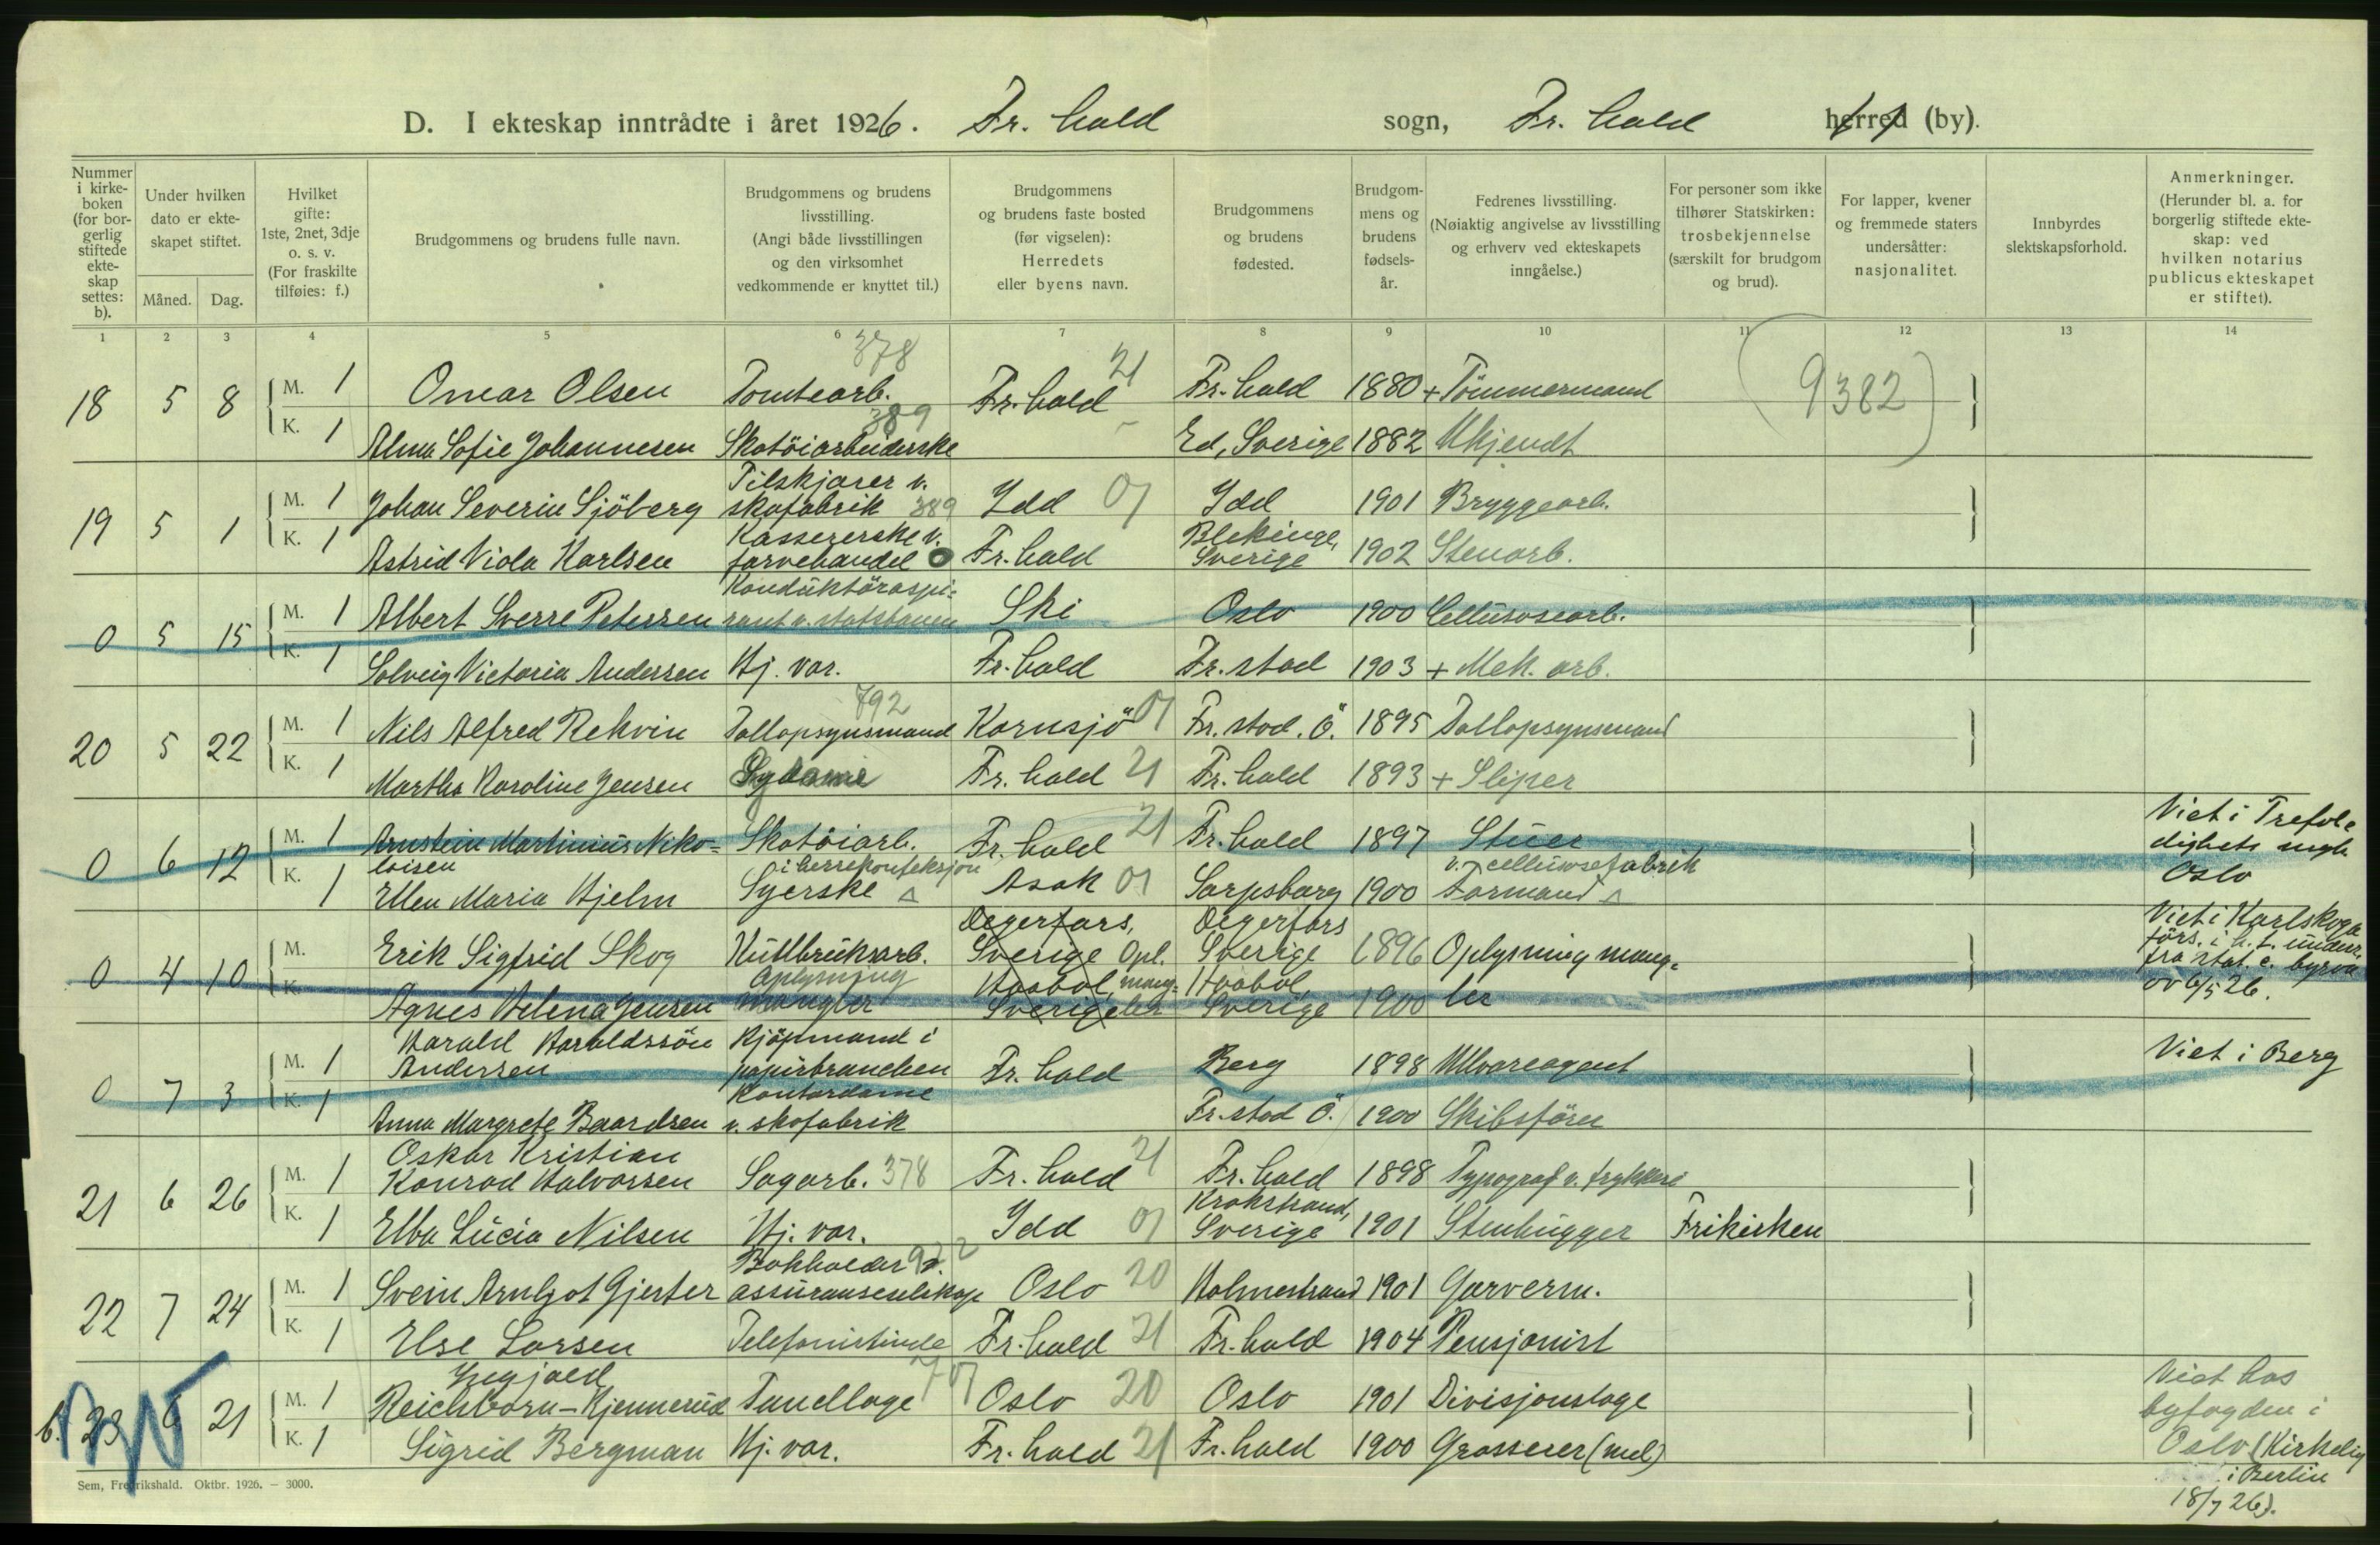 D. I ekteskap inntrådte i året 1926. Fr. hald sogn, Fr. hald herred (by).
Nummer i kirkeboken (for borgerlig stiftede ekteskap settes: b).
Under hvilken dato er ekteskapet stiftet.
Måned. Dag.
Hvilket gifte: 1ste, 2net, 3dje o. s. v. (For fraskilte tilføies: f.)
Brudgommens og brudens fulle navn.
Brudgommens og brudens livsstilling. (Angi både livsstillingen og den virksomhet vedkommende er knyttet til.)
Brudgommens og brudens faste bosted (før vigselen): Herredets eller byens navn.
Brudgommens og brudens fødested.
Brudgommens og brudens fødselsår.
Fedrenes livsstilling. (Nøiaktig angivelse av livsstilling og erhverv ved ekteskapets inngåelse.)
For personer som ikke tilhører Statskirken: trosbekjennelse (særskilt for brudgom og brud).
For lapper, kvener og fremmede staters undersåtter: nasjonalitet.
Innbyrdes slektskapsforhold.
Anmerkninger. (Herunder bl. a. for borgerlig stiftede ekteskap: ved hvilken notarius publicus ekteskapet er stiftet).
1 2 3 4 5 6 7 8 9 10 11 12 13 14
18 5 8 M. 1 Omar Olsen Tomtearb. 378 Fr. hald 21 Fr. hald 1880 + Tömmermand (9382)
K. 1 Alma Sofie Johannesen Skotöiarbeiderske 389 Ed, Sverige 1882 Ukjendt
19 5 1 M. 1 Johan Severin Sjöberg Tilskjærer v. skofabrik 389 Idd 01 Idd 1901 Bryggearb.
K. 1 Astrid Viola Karlsen Kassererske v. farvehandel 0 Fr. hald Blekinge, Sverige 1902 Stenarb.
0 5 15 M. 1 Albert Sverre Petersen Konduktöraspirant v. statsbanen Ski Oslo 1900 Cellulosearb.
K. 1 Solveig Victoria Andersen Hj. vær. Fr. hald Fr. stad 1903 + Mek. arb.
20 5 22 M. 1 Nils Alfred Rekvin Tollopsynsmand 792 Kornsjö 01 Fr. stad. Ö. 1895 Tollopsynsmand
K. 1 Martha Karoline Jensen Sydame Fr. hald 21 Fr. hald 1893 + Sliper
0 6 12 M. 1 Arnstein Martinius Nikolaisen Skotöiarb. Fr. hald 21 Fr. hald 1897 Stuer Viet i Trefoldighets mgh. Oslo
K. 1 Ellen Maria Hjelm Syerske i herrekonfeksjon Asak 01 Sarpsborg 1900 Formand v. cellulosefabrik
0 4 10 M. Erik Sigfrid Skog Hullbruksarb. Degerfors, Sverige Opl. Degerfors Sverige 1896 Oplysning mang= Viet i Karlskoga förs. i h. t. underr. fra stat. c. byrå av 6/5 26.
K. Agnes Helena Jensen Oplysning mangler Haabol, Sverige mang=ler Haabol, Sverige 1900 ler
0 7 3 M. 1 Harald Haraldssön Andersen Kjöpmand i papirbranchen Fr. hald Berg 1898 Ullvareagent Viet i Berg
K. 1 Anna Margrete Baardsen Kontordame v. skofabrik Fr. stad Ö. 1900 Skibsförer
21 6 26 M. 1 Oskar Kristian Konrad Halvorsen Sagarb. 378 Fr. hald 21 Fr. hald 1898 Typograf v. trykkeri
K. 1 Elba Lucia Nilsen Hj. vær. Idd 01 Krokstrand, Sverige 1901 Stenhugger Frikirken
22 7 24 M. 1 Svein Arnljot Gjerter Bokholder v. assuranseselskap 922 Oslo 20 Holmestrand 1901 Garverm.
K. 1 Else Larsen Telefonistinde Fr. hald 21 Fr. hald 1904 Pensjonist
b. 23 6 21 M. 1 Ingjald Reichborn-Kjennerud Tandlæge 707 Oslo 20 Oslo 1901 Divisjonslæge Viet hos byfogden i Oslo (Kirkelig i Berlin 18/7 26).
K. 1 Sigrid Bergman Hj. vær. Fr. hald 21 Fr. hald 1900 Grosserer (mel)
Sem, Fredrikshald. Oktbr. 1926. — 3000.